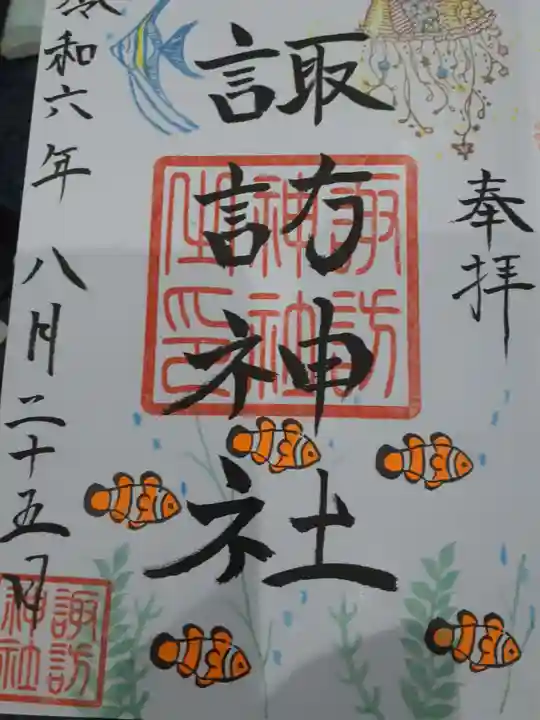 奉拝
諏訪神社
諏訪
神社
令和六年八月二十五日
諏訪
神社